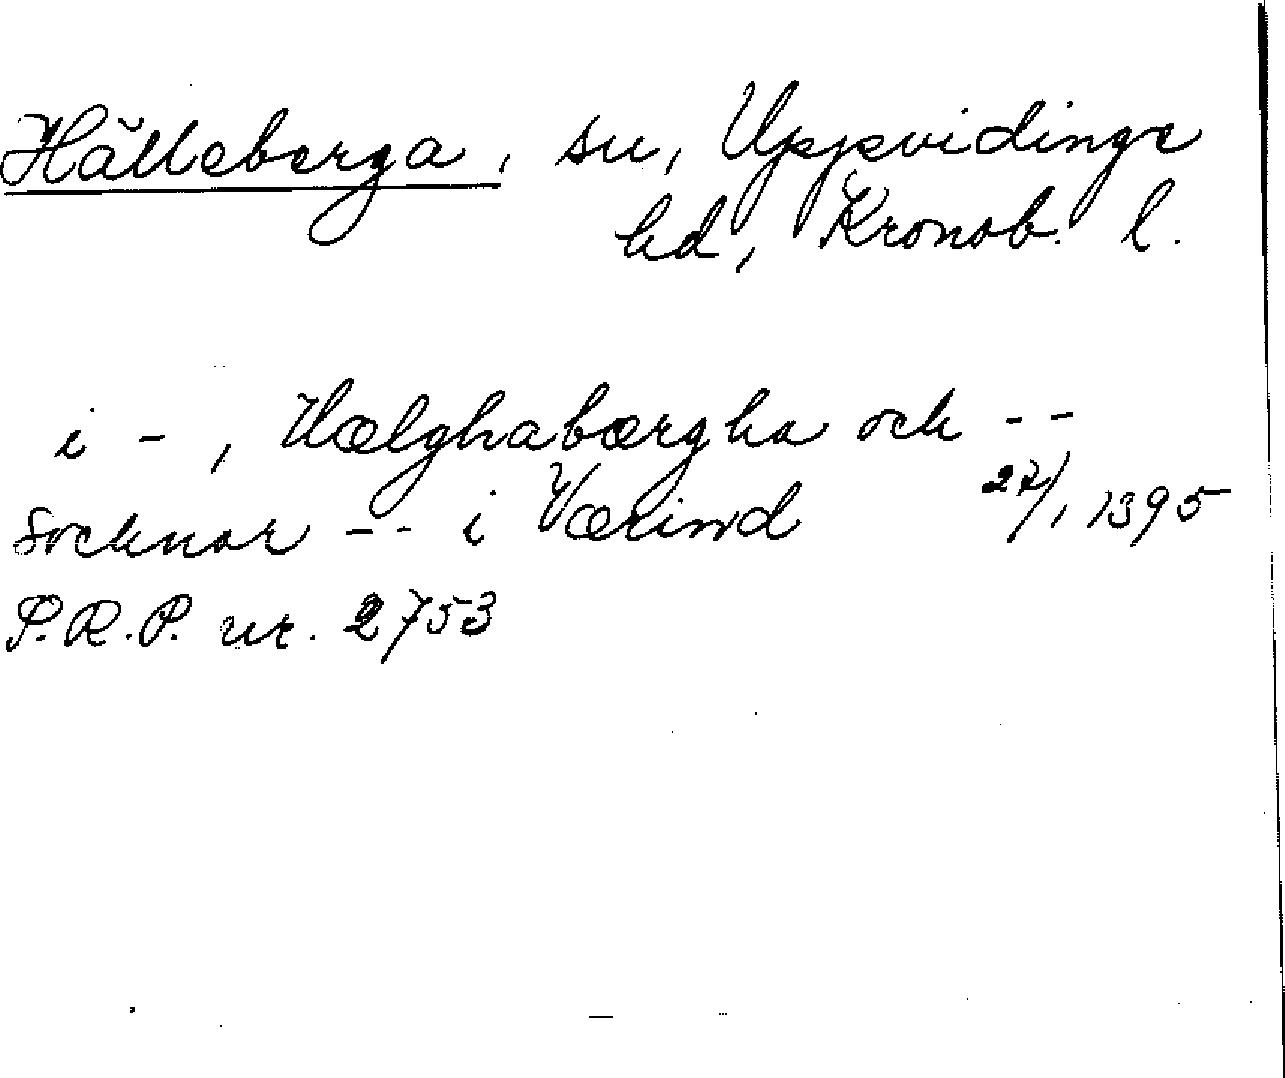 Hälleberga, sn, Uppvidinge
hd, Kronob. l.
i -, Hælghabærgha och --
socknar -- i Værind 27/1 1395
P.R.P. nr. 2753